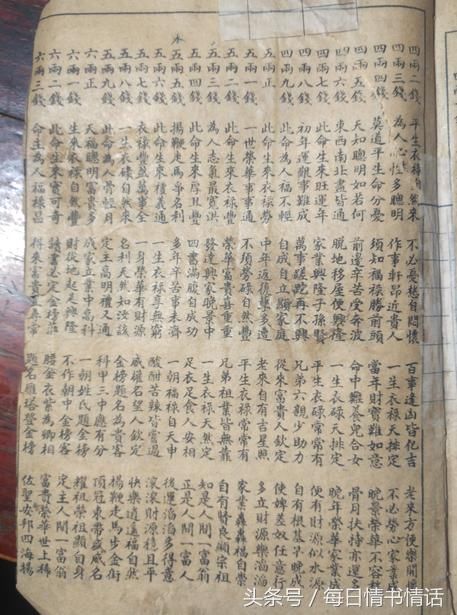 四兩二錢 平生衣祿自然來 不必憂愁自悶懷 百事逢凶皆化吉 老來方便樂開懷
四兩三錢 為人心性多聰明 作事軒昂近貴人 一生衣祿天推定 不必勞心家業成
四兩四錢 莫道平生命分憂 須知福祿勝前頭 當年財寶難如意 晚景榮華不容
四兩五錢 天知聰明如若何 前邊辛苦受奔波 命中難養兒合女 骨肉扶持亦運多
四兩六錢 東西南北盡皆通 脫地移屋便興隆 一生衣祿天排定 晚年榮華家業
四兩七錢 此命生來旺運年 家業興隆子孫賢 平生衣祿常常有 便有財源似水源
四兩八錢 初年運難事難成 萬事蹉跎再不興 兄弟六親少助力 自有根基早晚成
四兩九錢 此命為人福不輕 自成自立顯家庭 從來富貴人欽定 使婢差奴任意行
五兩正 此命生來衣祿勞 中年返復多遭 老來自有吉星照 多立財源樂滔滔
五兩一錢 一世榮華事事通 不須勞碌自然豐 平生衣祿常常有 家業轟轟福自來
五兩二錢 此命生來衣祿豐 榮華富貴喜重重 兄弟祖業皆無靠 自有賢良顯祖宗
五兩三錢 為人志氣最寬洪 發達興家晚景中 一生衣祿天然定 知是人間一富翁
五兩四錢 此命生來厚且豐 四書滿腹自成功 足衣足食人安相 正是人間一富人
五兩五錢 揚鞭走馬爭名利 多年辛苦事未濟 一朝福祿自天申 後運滔滔多得意
五兩六錢 此命生來禮義通 一生衣祿享無窮 酸甜苦辣皆嘗過 滾滾財源穩且平
五兩七錢 衣祿豐盈萬事全 一身榮華有財源 威權名望人欽定 快樂逍遙福自然
五兩八錢 一生衣祿自然來 名利天然如汝該 金榜題名為貴客 揚鞭走馬步金街
五兩九錢 此命為人骨輕 定主高明禮又通 科甲三中應有分 頂冠束帶威威名
六兩正 天福聰明富貴多 成家立業中高科 一朝姓氏題金榜 耀祖榮宗顯自身
六兩一錢 生來衣祿自然豐 財從地起足興隆 不作朝中金榜客 定主人間一富翁
六兩二錢 此命生來實可奇 讀書必定金榜 腰金衣紫為卿相 富貴榮華世上稀
六兩三錢 命主為人福祿昌 得來富貴異尋常 題名雁塔登金榜 佐聖安邦四海揚
头条号 / 每日情书情话